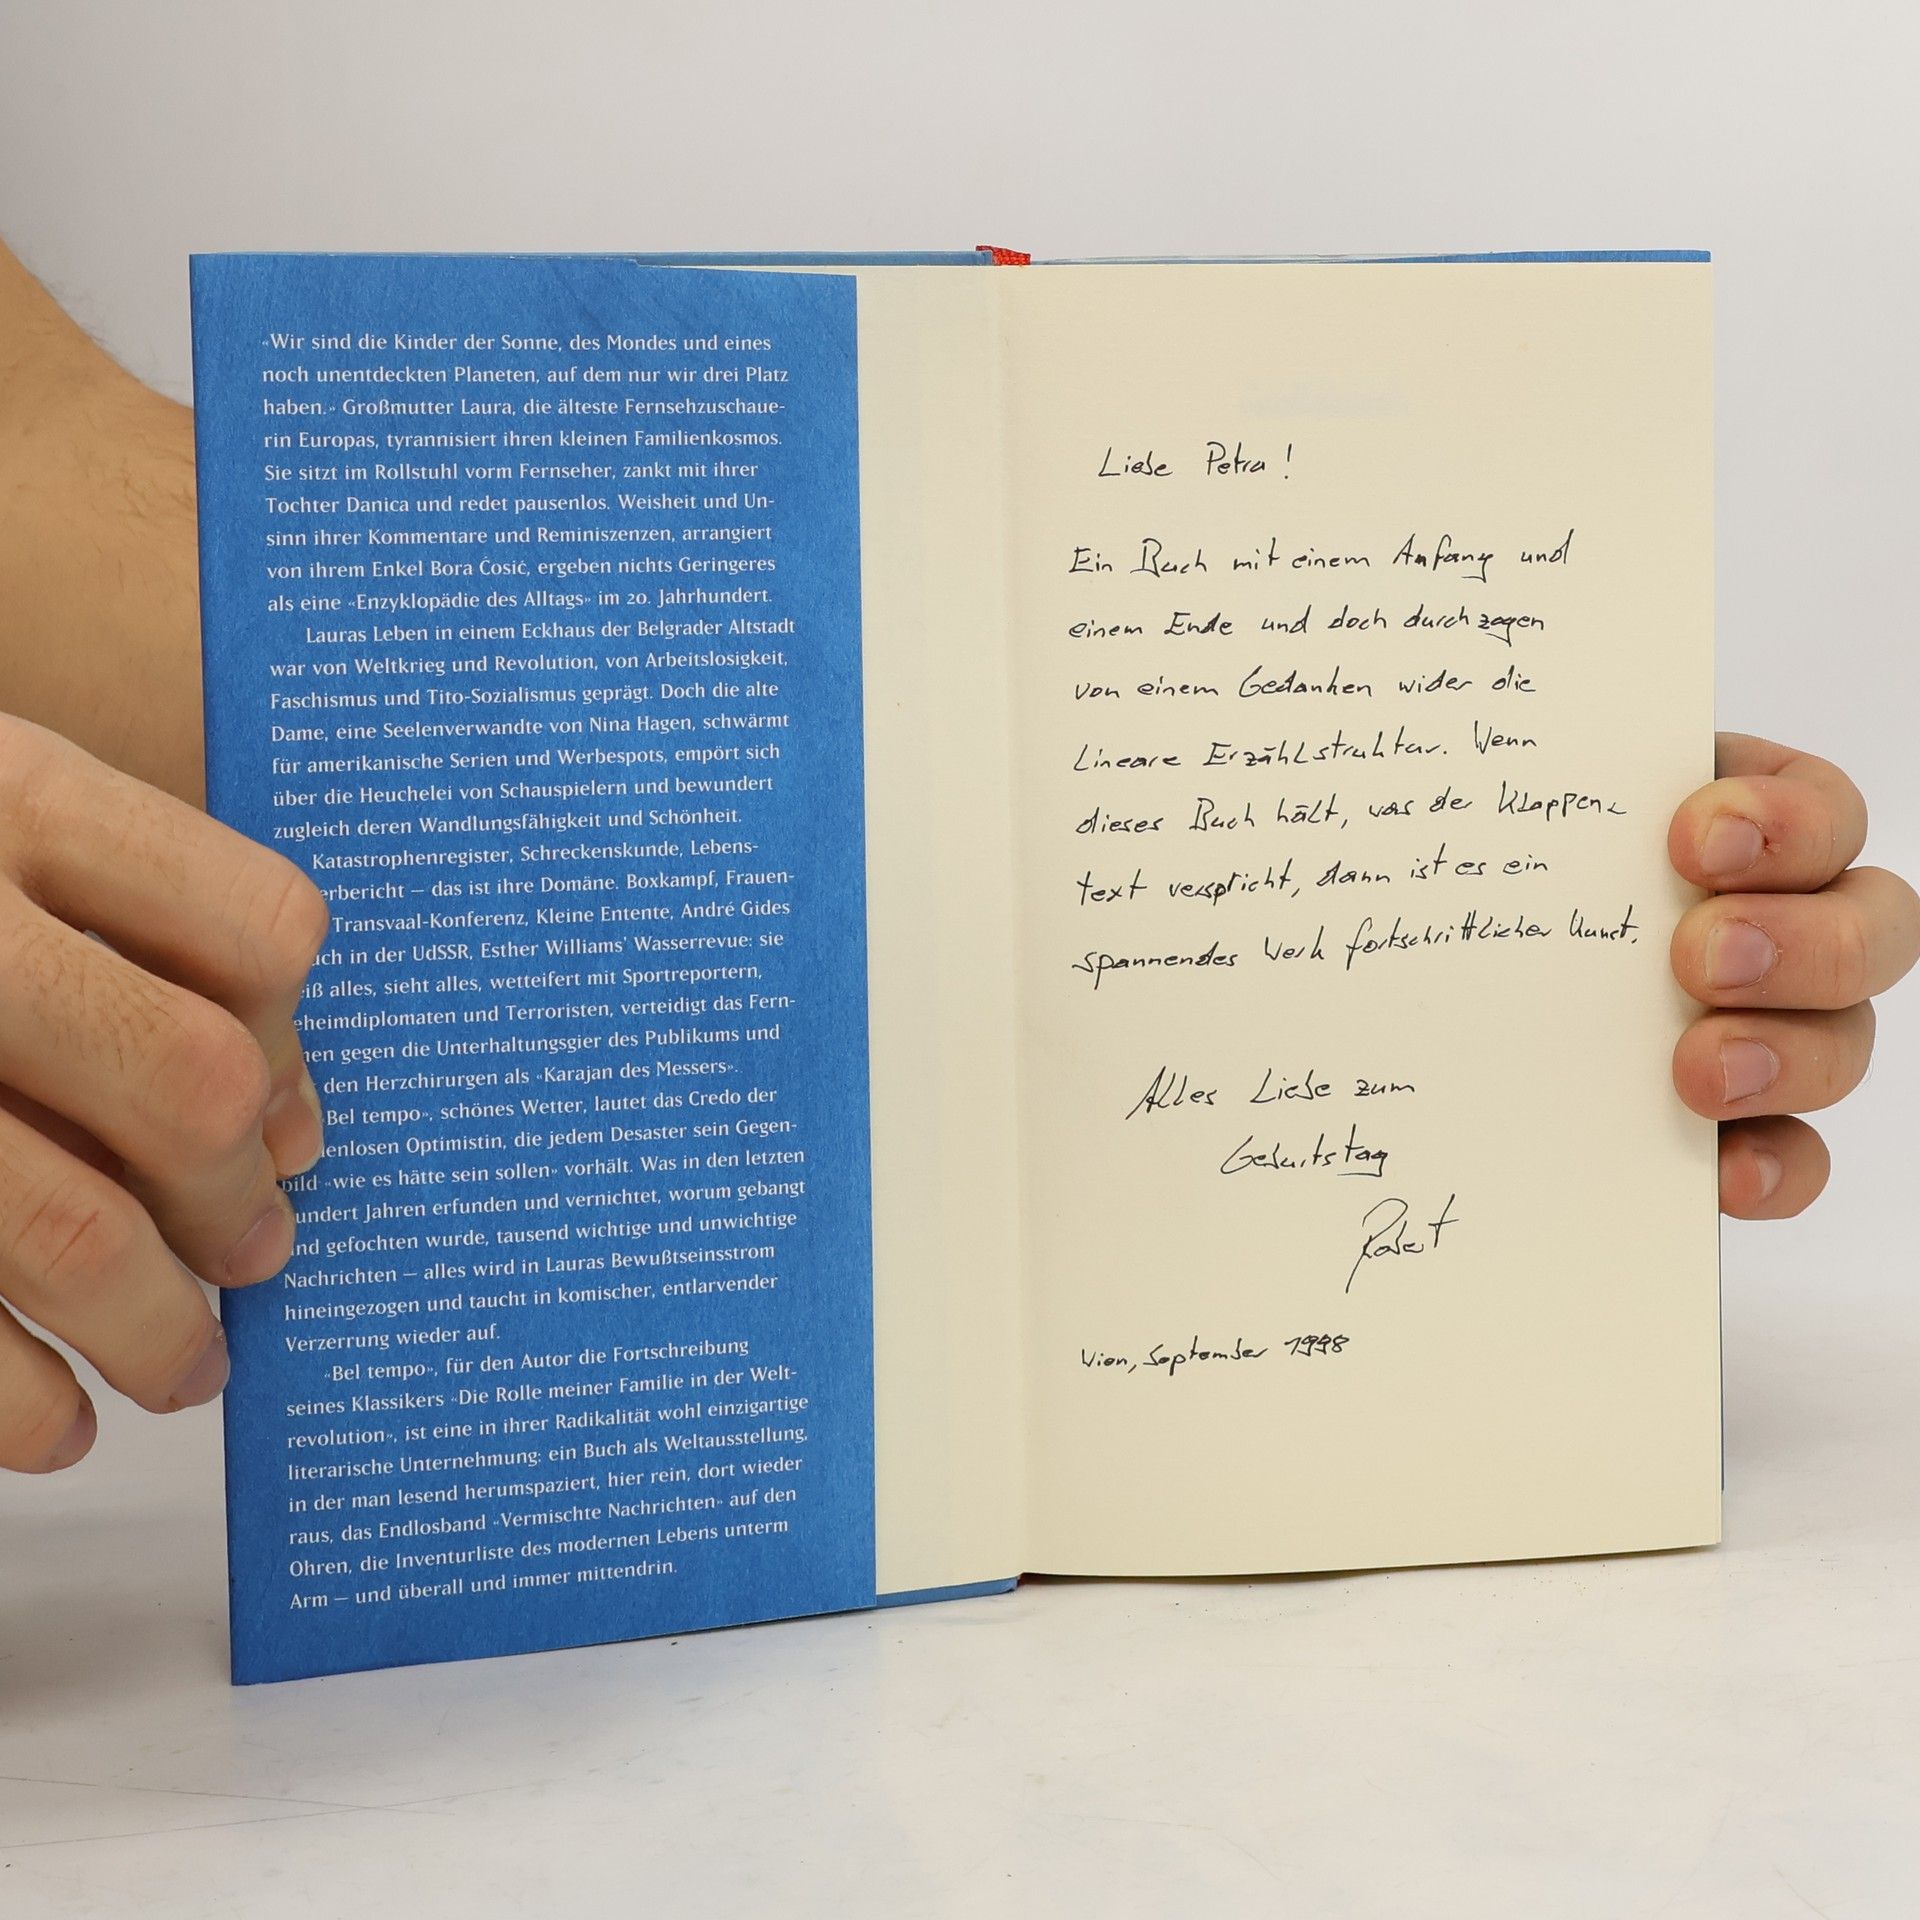 «Wir sind die Kinder der Sonne, des Mondes und eines
noch unentdeckten Planeten, auf dem nur wir drei Platz
haben.» Großmutter Laura, die älteste Fernsehzuschaue-
rin Europas, tyrannisiert ihren kleinen Familienkosmos.
Sie sitzt im Rollstuhl vorm Fernseher, zankt mit ihrer
Tochter Danica und redet pausenlos. Weisheit und Un-
sinn ihrer Kommentare und Reminiszenzen, arrangiert
von ihrem Enkel Bora Ćosić, ergeben nichts Geringeres
als eine «Enzyklopädie des Alltags» im 20. Jahrhundert.
Lauras Leben in einem Eckhaus der Belgrader Altstadt
war von Weltkrieg und Revolution, von Arbeitslosigkeit,
Faschismus und Tito-Sozialismus geprägt. Doch die alte
Dame, eine Seelenverwandte von Nina Hagen, schwärmt
für amerikanische Serien und Werbespots, empört sich
über die Heuchelei von Schauspielern und bewundert
zugleich deren Wandlungsfähigkeit und Schönheit.
Katastrophenregister, Schreckenskunde, Lebens-
erbericht – das ist ihre Domäne. Boxkampf, Frauen-
Transvaal-Konferenz, Kleine Entente, André Gides
uch in der UdSSR, Esther Williams' Wasserrevue: sie
iß alles, sieht alles, wetteifert mit Sportreportern,
eheimdiplomaten und Terroristen, verteidigt das Fern-
en gegen die Unterhaltungsgier des Publikums und
den Herzchirurgen als «Karajan des Messers».
Bel tempo», schönes Wetter, lautet das Credo der
enlosen Optimistin, die jedem Desaster sein Gegen-
bild «wie es hätte sein sollen» vorhält. Was in den letzten
undert Jahren erfunden und vernichtet, worum gebangt
und gefochten wurde, tausend wichtige und unwichtige
Nachrichten – alles wird in Lauras Bewußtseinsstrom
hineingezogen und taucht in komischer, entlarvender
Verzerrung wieder auf.
«Bel tempo», für den Autor die Fortschreibung
seines Klassikers «Die Rolle meiner Familie in der Welt-
revolution», ist eine in ihrer Radikalität wohl einzigartige
literarische Unternehmung: ein Buch als Weltausstellung,
in der man lesend herumspaziert, hier rein, dort wieder
raus, das Endlosband «Vermischte Nachrichten» auf den
Ohren, die Inventurliste des modernen Lebens unterm
Arm – und überall und immer mittendrin.
Liebe Petra!
Ein Buch mit einem Anfang und
einem Ende und doch durchzogen
von einem Gedanken wider die
Lineare Erzählstruktur. Wenn
dieses Buch hält, was der Klappen-
text verspricht, dann ist es ein
spannendes Werk fortschrittlicher Kunst.
Alles Liebe zum
Geburtstag
Robert
Wien, September 1998